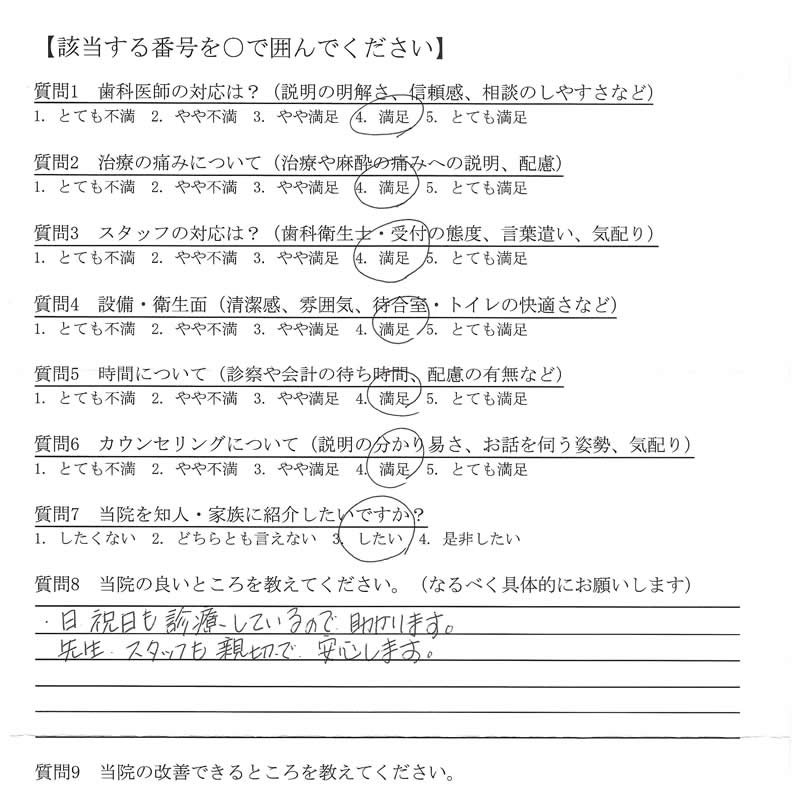 【該当する番号を○で囲んでください】
質問1 歯科医師の対応は？（説明の明解さ、信頼感、相談のしやすさなど）
1. とても不満 2. やや不満 3. やや満足 4. 満足 5. とても満足
質問2 治療の痛みについて（治療や麻酔の痛みへの説明、配慮）
1. とても不満 2. やや不満 3. やや満足 4. 満足 5. とても満足
質問3 スタッフの対応は？（歯科衛生士・受付の態度、言葉遣い、気配り）
1. とても不満 2. やや不満 3. やや満足 4. 満足 5. とても満足
質問4 設備・衛生面（清潔感、雰囲気、待合室・トイレの快適さなど）
1. とても不満 2. やや不満 3. やや満足 4. 満足 5. とても満足
質問5 時間について（診察や会計の待ち時間、配慮の有無など）
1. とても不満 2. やや不満 3. やや満足 4. 満足 5. とても満足
質問6 カウンセリングについて（説明の分かり易さ、お話を伺う姿勢、気配り）
1. とても不満 2. やや不満 3. やや満足 4. 満足 5. とても満足
質問7 当院を知人・家族に紹介したいですか？
1. したくない 2. どちらとも言えない 3. したい 4. 是非したい
質問8 当院の良いところを教えてください。（なるべく具体的にお願いします）
・日 祝日も診療しているので助かります。
先生・スタッフも親切で安心します。
質問9 当院の改善できるところを教えてください。